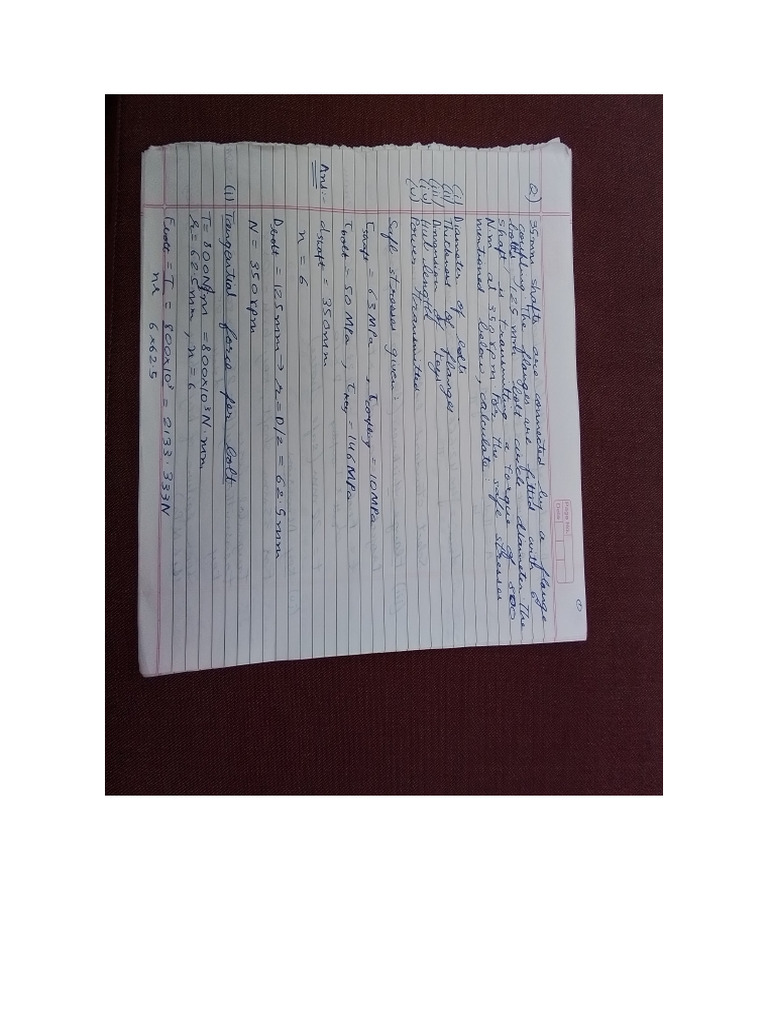 ①
Page No.
Date
Q) 35mm shafts are connected by a flange
coupling. The flanges are fitted with 6
bolts, 125 mm bolt circle diameter. The
shaft is transmitting a torque of 800
Nm at 350 rpm. For the safe stresses
mentioned below, calculate:
(i) Diameter of bolts
(ii) Thickness of flanges.
(iii) Dimension of keys
(iv) Hub length
(v) Power transmitted
Safe stresses given:
τshaft = 63 MPa , τcoupling = 10MPa
τbolt = 50 MPa , τkey = 146 MPa
Ans:- dshaft = 350mm
n = 6
Dbolt = 125mm → r = D/2 = 62.5mm
N = 350rpm
(i) Tangential force per bolt
T = 800Nm = 800×10³ N.mm
r = 62.5mm, n = 6
Fbolt = T/nr = 800×10³/6×62.5 = 2133.333N